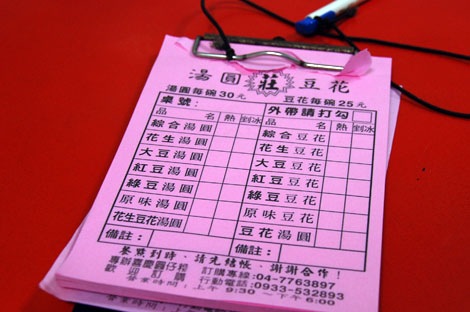 湯圓 莊 豆花
湯圓每碗30元 豆花每碗25元
桌號： 外帶請打勾
品名 熱 刨冰 品名 熱 刨冰
綜合湯圓 綜合豆花
花生湯圓 花生豆花
大豆湯圓 大豆豆花
紅豆湯圓 紅豆豆花
綠豆湯圓 綠豆豆花
原味湯圓 原味豆花
花生豆花湯圓 豆花湯圓
備註： 備註：
餐點到時、請先結帳、謝謝合作！
專辦嘉慶圓仔和 訂購專線：04-7763897
歡迎 行動電話：0933-532893
營業時間：上午 9:30 ～ 下午 6:00